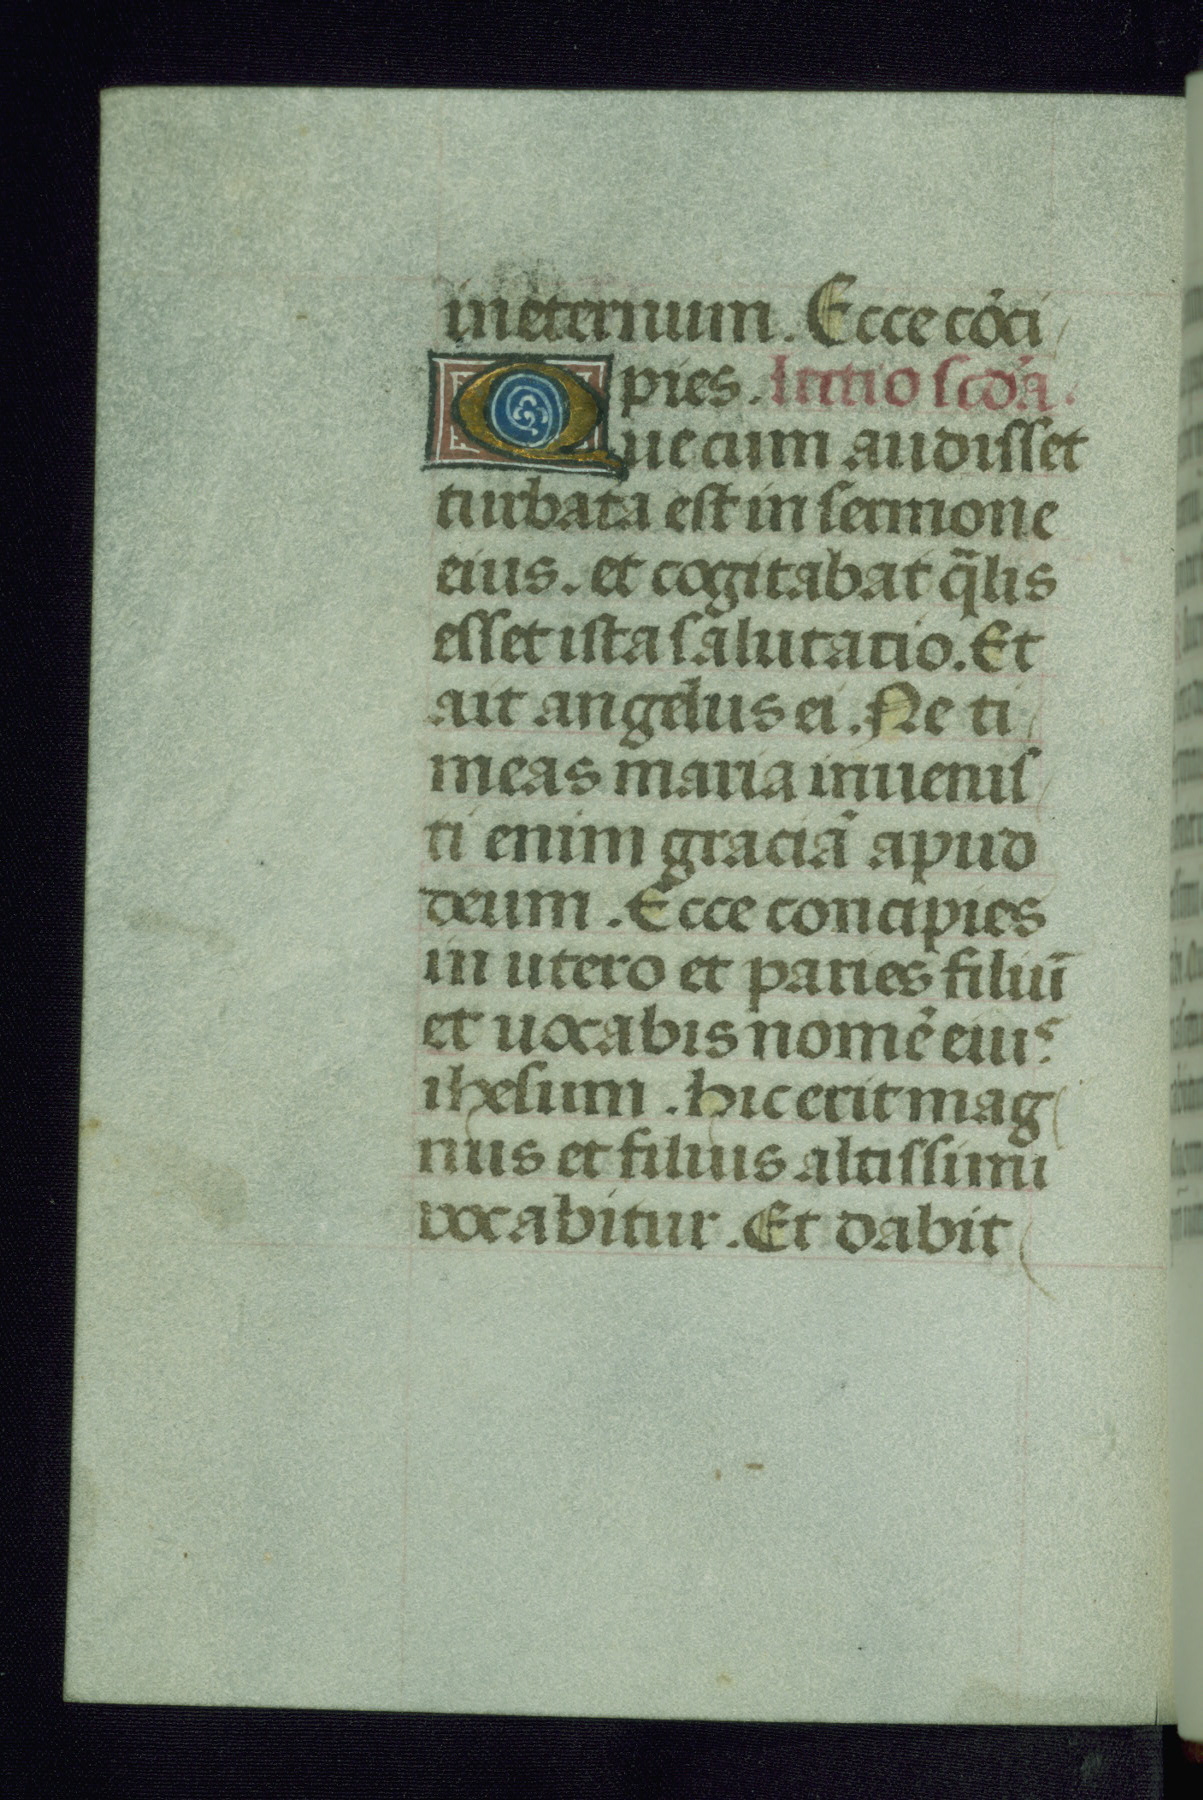 in eternum. Ecce cōci
pies. lectio scd̄a.
Que cum audisset
turbata est in sermone
eius. et cogitabat q̄lis
esset ista salutatio. Et
ait angelus ei. Ne ti
meas maria inuenis
ti enim graciā apud
deum. Ecce concipies
in utero et paries filiū
et uocabis nomē eius
ihesum. hic erit mag
nus et filius altissimi
vocabitur. Et dabit